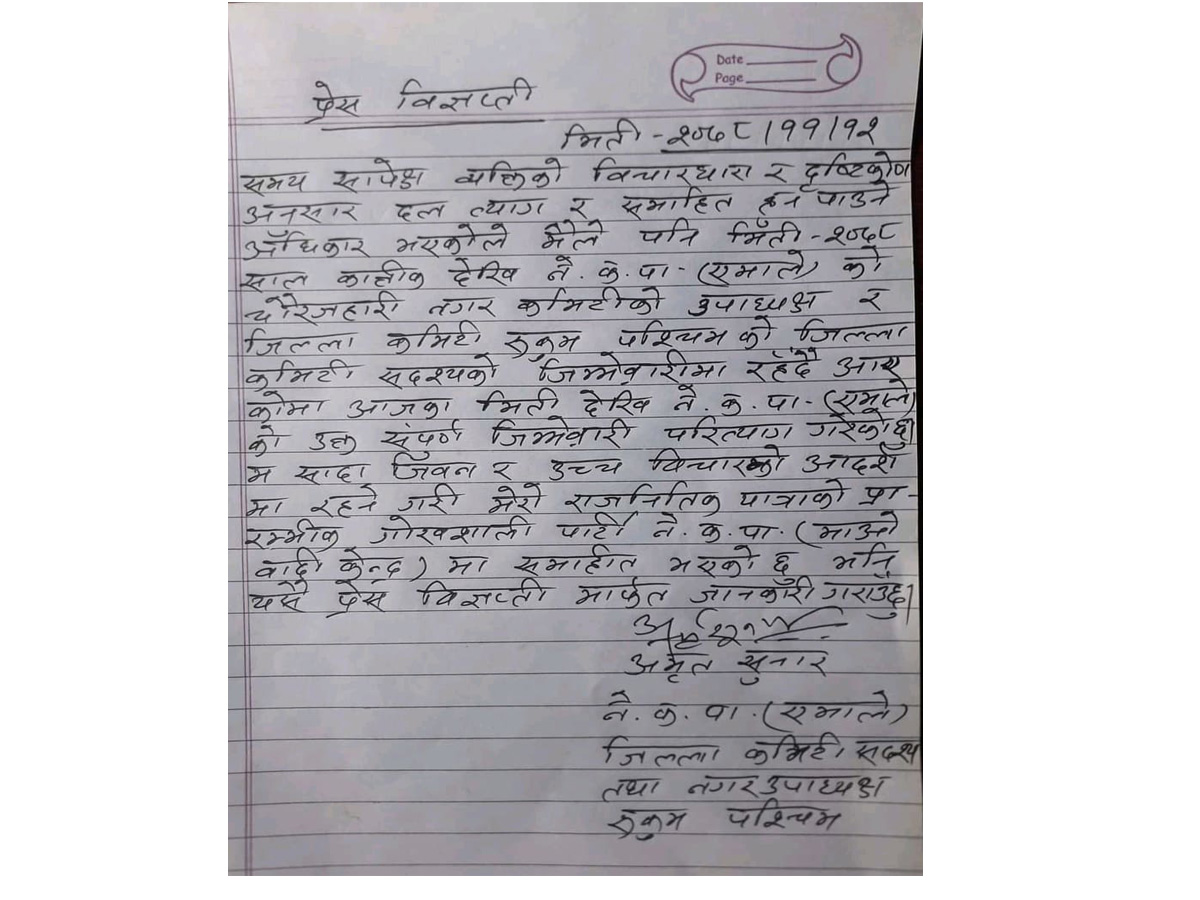 Date
Page
प्रेस विज्ञप्ती
मिती - २०७८ । ११ । १२
समय सापेक्ष व्यक्तिको विचारधारा र दृष्टिकोण
अनुसार दल त्याग र समाहित हुन पाउने
अधिकार भएकोले मैले पनि मिती - २०७८
साल कात्तीक देखि ने. क. पा - (एमाले) को
चौरजहारी नगर कमिटीको उपाध्यक्ष र
जिल्ला कमिटी रुकुम पश्चिम को जिल्ला
कमिटी सदश्यको जिम्मेवारीमा रहँदै आए
कोमा आजका मिती देखि ने. क. पा - (एमाले)
को उक्त संपुर्ण जिम्मेवारी परित्याग गरेकोछु।
म सादा जिवन र उच्च विचारको आदर्श
मा रहने गरी मेरो राजनितिक यात्राको प्रा-
रम्भीक गोरवशाली पार्टी ने. क. पा. (माओ
वादी केन्द्र) मा समाहीत भएको छु भनि
यसै प्रेस विज्ञप्ती मार्फत जानकारी गराउँछु।
अमृत सुनार
ने. क. पा. (एमाले)
जिल्ला कमिटी सदश्य
तथा नगर उपाध्यक्ष
रुकुम पश्चिम